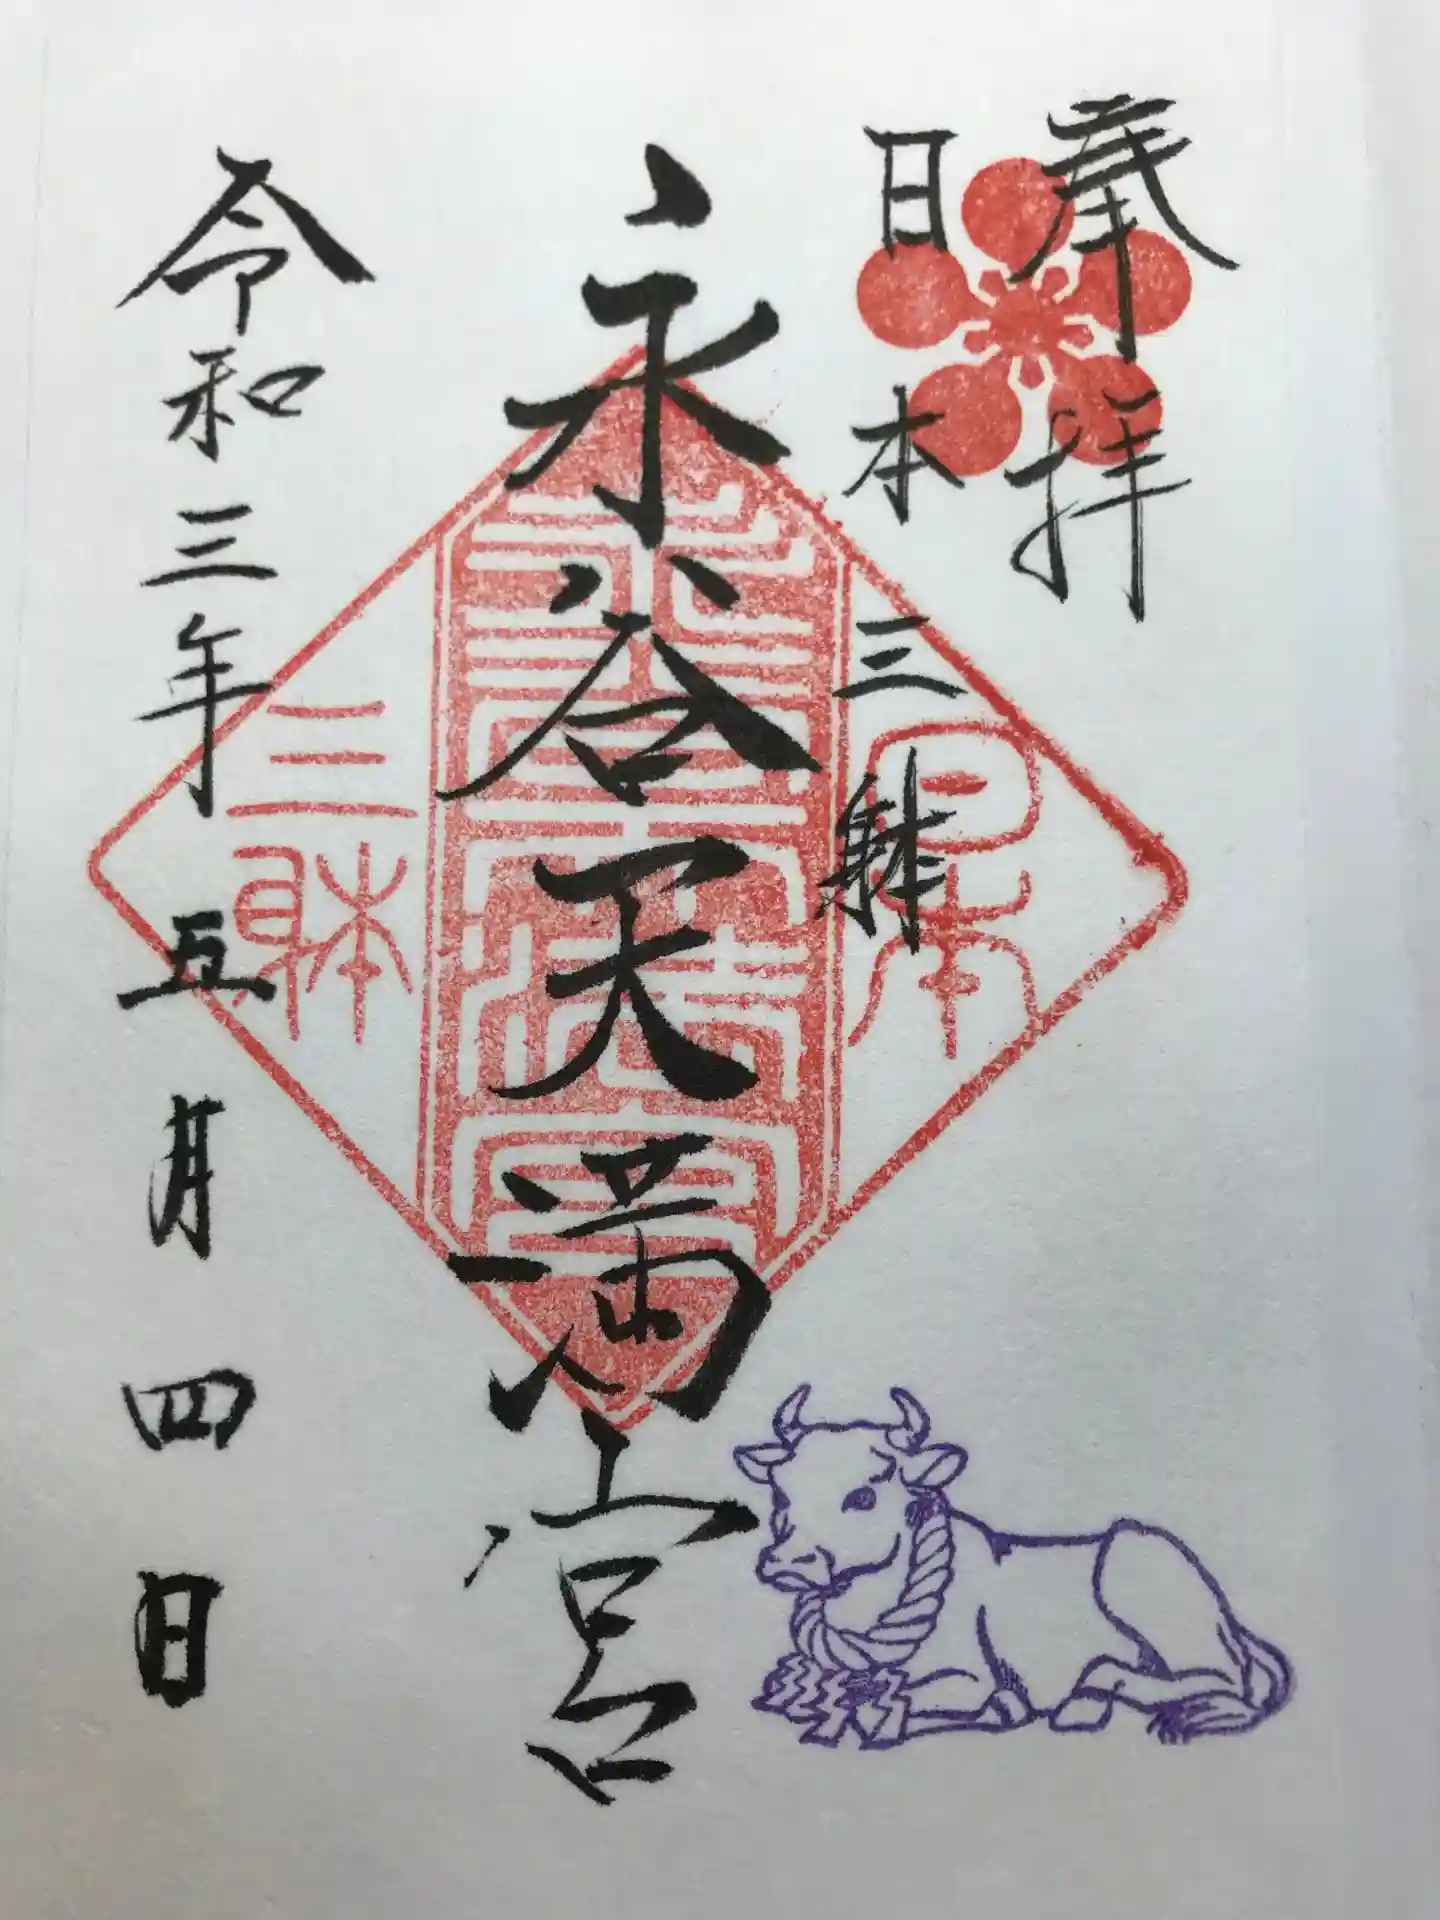 奉拝
日本三躰
永谷天満宮
令和三年五月四日
日本
三躰